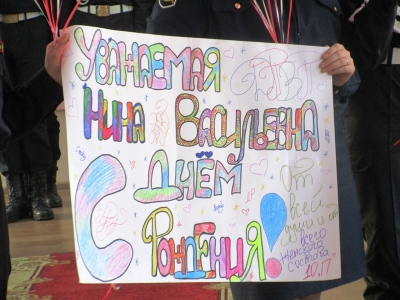 Уважаемая
Нина Васильевна
С Днём
Рождения!
От
всей
души и от
всего
женского
состава
10.17